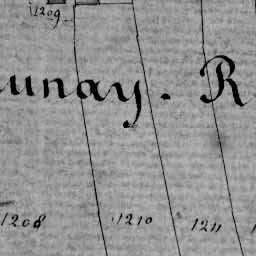 1209
unay. R
1208 1210 1211